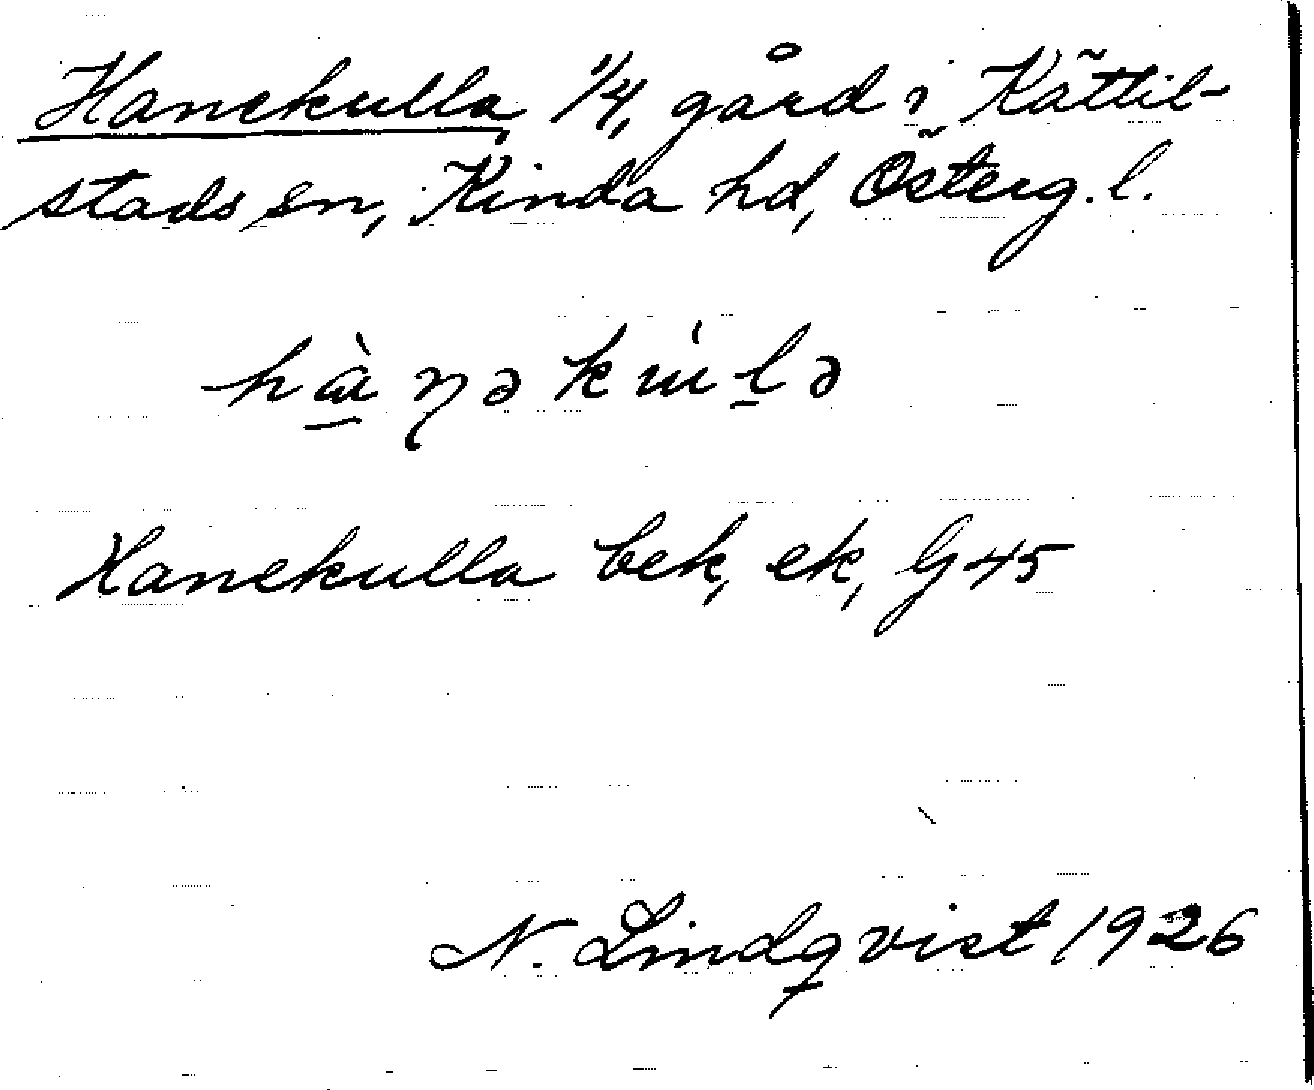 Hanekulla, 1/4, gård i Kättil-
stads sn, Kinda hd, Österg. l.
Hanekulla bek, ek, G 45
N. Lindqvist 1926